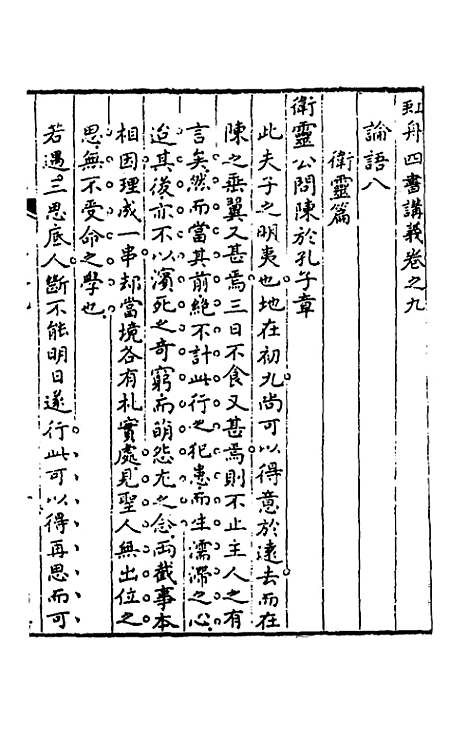 虹舟四書講義卷之九
論語八
衛靈篇
衛靈公問陳於孔子章
此夫子之明夷也地在初九尚可以得意於遠去而在
陳之垂翼又甚焉三日不食又甚焉則不止主人之有
言矣然而當其前絶不計此行之犯患而生濡滯之心
迨其後亦不以濱死之奇窮而萌怨尤之念兩截事本
相因理成一串却當境各有札實處見聖人無出位之
思無不受命之學也
若遇三思底人斷不能明日遂行此可以得再思而可